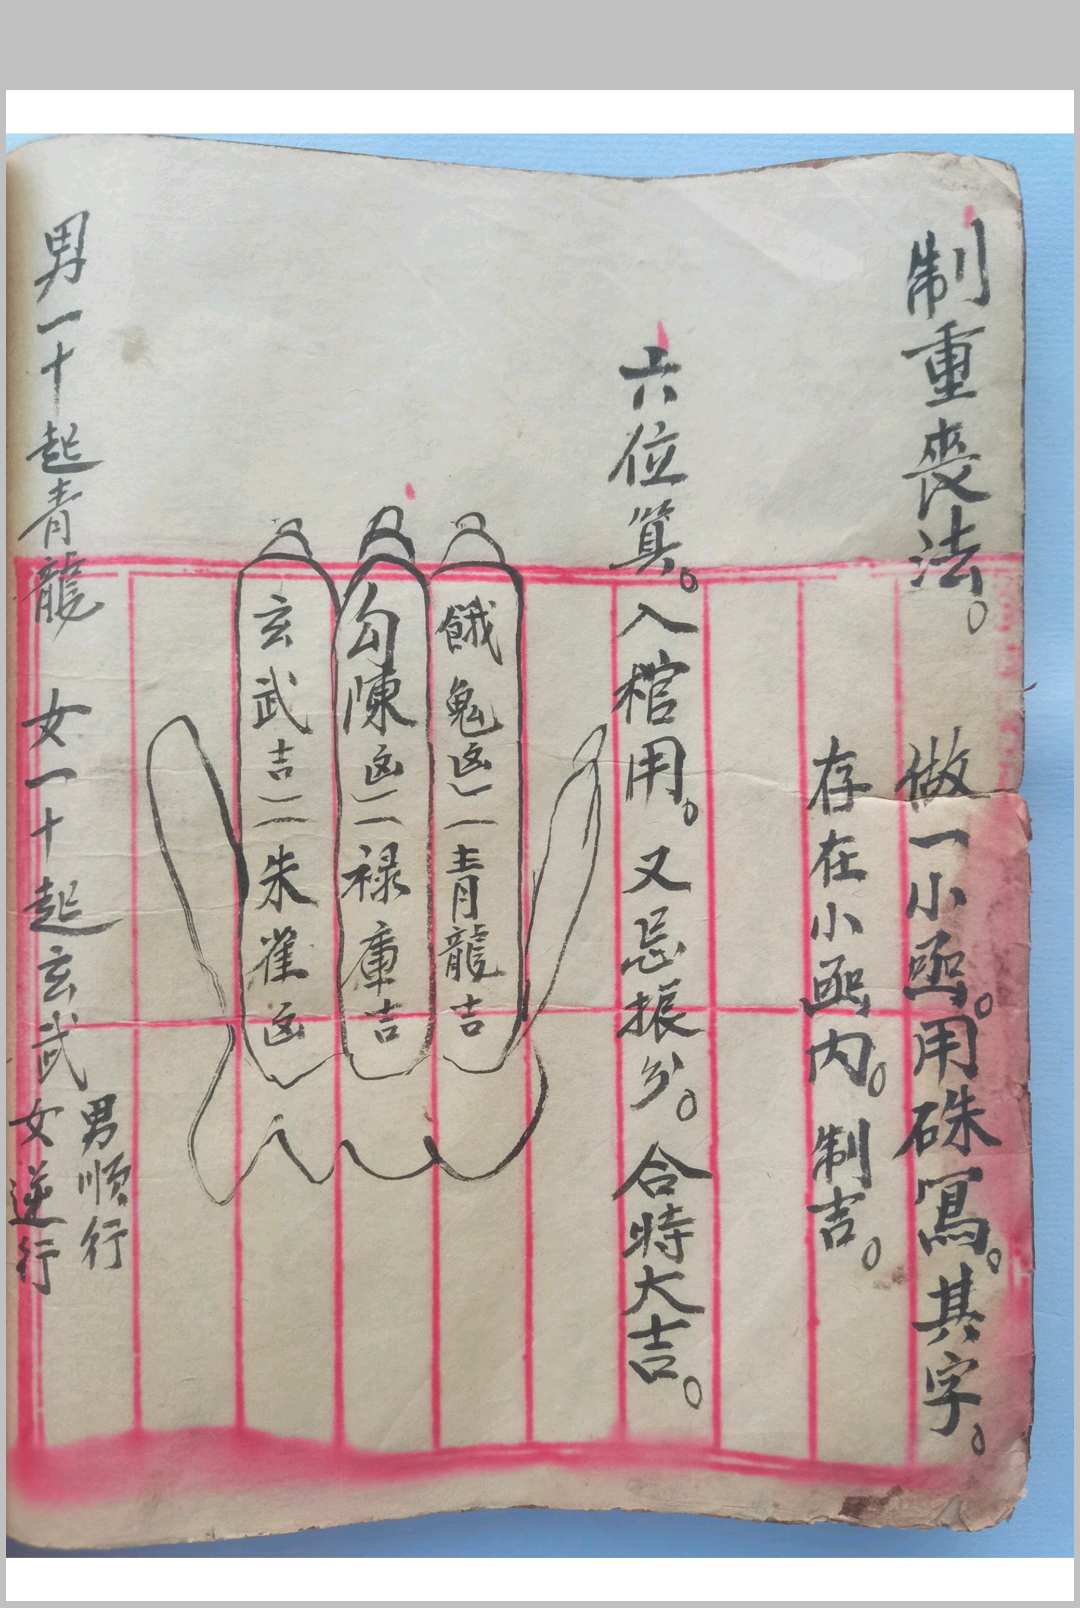 制重喪法。
做一小函。用硃寫。其字。
存在小函内。制吉。
六位算。入棺用。又忌振分。合時大吉。
餓鬼凶 青龍吉
勾陳凶 禄庫吉
玄武吉 朱雀凶
男一十起青龍 女一十起玄武
男順行
女逆行